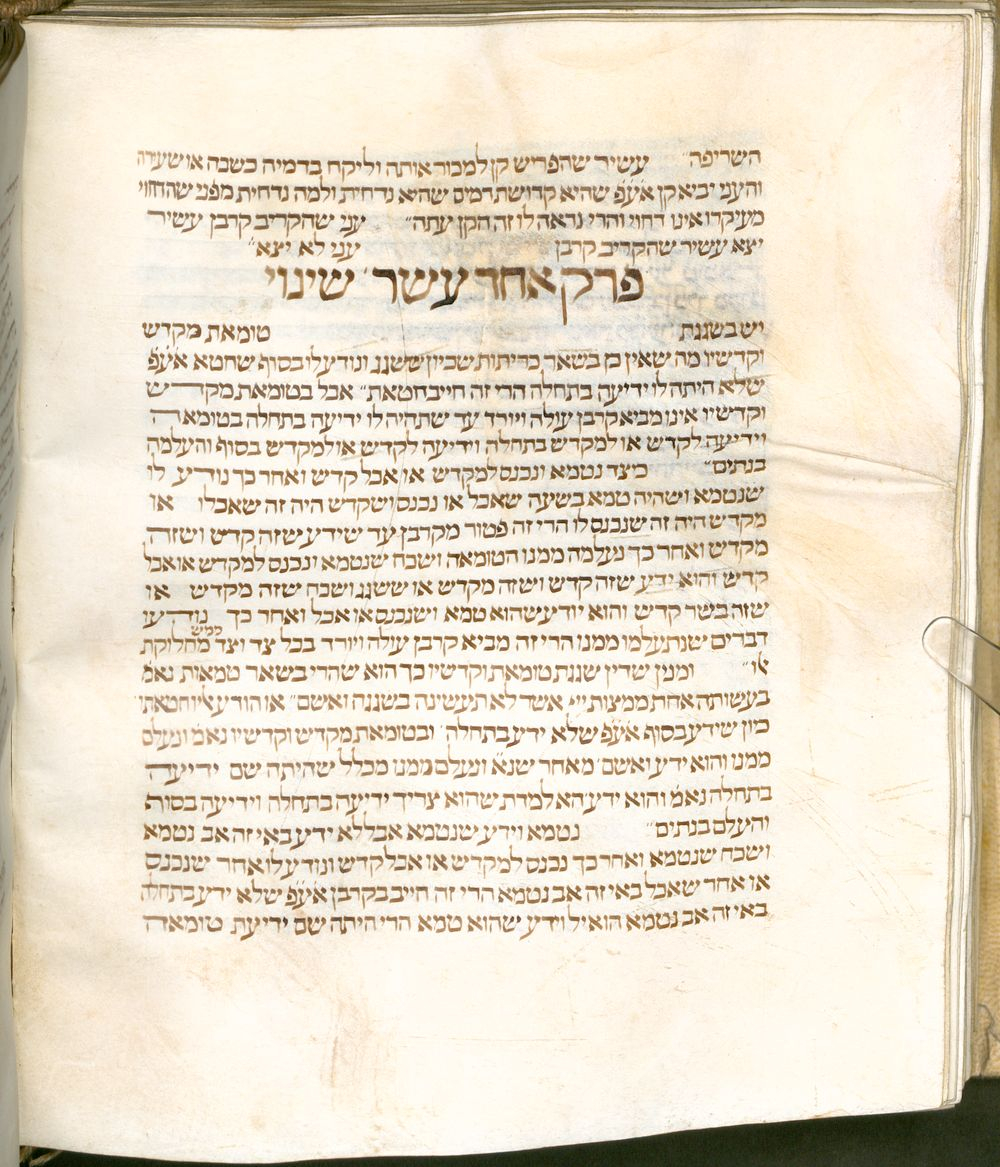 השריפה״ עשיר שהפריש קן למכור אותה וליקח בדמיה כשבה או שעירה
והעני יביא קן אע״פ שהיא קדושת דמים שהיא נדחית ולמה נדחית מפני שהדחוי
מעיקרו אינו דחוי והרי נראה לו זה הקן עתה״ עני שהקריב קרבן עשיר
יצא עשיר שהקריב קרבן עני לא יצא״
פרק אחד עשר שינוי
יש בשגגת טומאת מקדש
וקדשיו מה שאין כן בשאר כריתות שכיון ששגג ונודע לו בסוף שחטא אע״פ
שלא היתה לו ידיעה בתחלה הרי זה חייב חטאת״ אבל בטומאת מקדש
וקדשיו אינו מביא קרבן עולה ויורד עד שתהיה לו ידיעה בתחלה בטומאה
וידיעה לקדש או למקדש בתחלה וידיעה לקדש או למקדש בסוף והעלמה
בנתים״ כיצד נטמא ונכנס למקדש או אכל קדש ואחר כך נודע לו
שנטמא ושהיה טמא בשעה שאכל או נכנס ושקדש היה זה שאכלו או
מקדש היה זה שנכנס לו הרי זה פטור מקרבן עד שידע שזה קדש ושזה
מקדש ואחר כך נעלמה ממנו הטומאה ושכח שנטמא ונכנס למקדש או אכל
קדש והוא ידע שזה קדש ושזה מקדש או ששגג ושכח שזה מקדש או
שזה בשר קדש והוא יודע שהוא טמא ושנכנס או אכל ואחר כך נודעו
דברים שנתעלמו ממנו הרי זה מביא קרבן עולה ויורד בכל צד וצד כמש מחלוקת
או״ ומנין שדין שגגת טומאת וקדשיו כך הוא שהרי בשאר טמאות נאמ
בעשותה אחת ממצות ייי אשר לא תעשינה בשגגה ואשם״ או הודע אליו חטאתו
כיון שידע בסוף אע״פ שלא ידע בתחלה ובטומאת מקדש וקדשיו נאמ ונעלם
ממנו והוא ידע ואשם מאחר שנ׳ ונעלם ממנו מכלל שהיתה שם ידיעה
בתחלה נאמ והוא ידע הא למדת שהוא צריך ידיעה בתחלה וידיעה בסוף
והעלם בנתים״ נטמא וידע שנטמא אבל לא ידע באי זה אב נטמא
ושכח שנטמא ואחר כך נכנס למקדש או אכל קדש ונודע לו אחר שנכנס
או אחר שאכל באי זה אב נטמא הרי זה חייב בקרבן אע״פ שלא ידע בתחלה
באי זה אב נטמא הואיל וידע שהוא טמא הרי היתה שם ידיעת טומאה